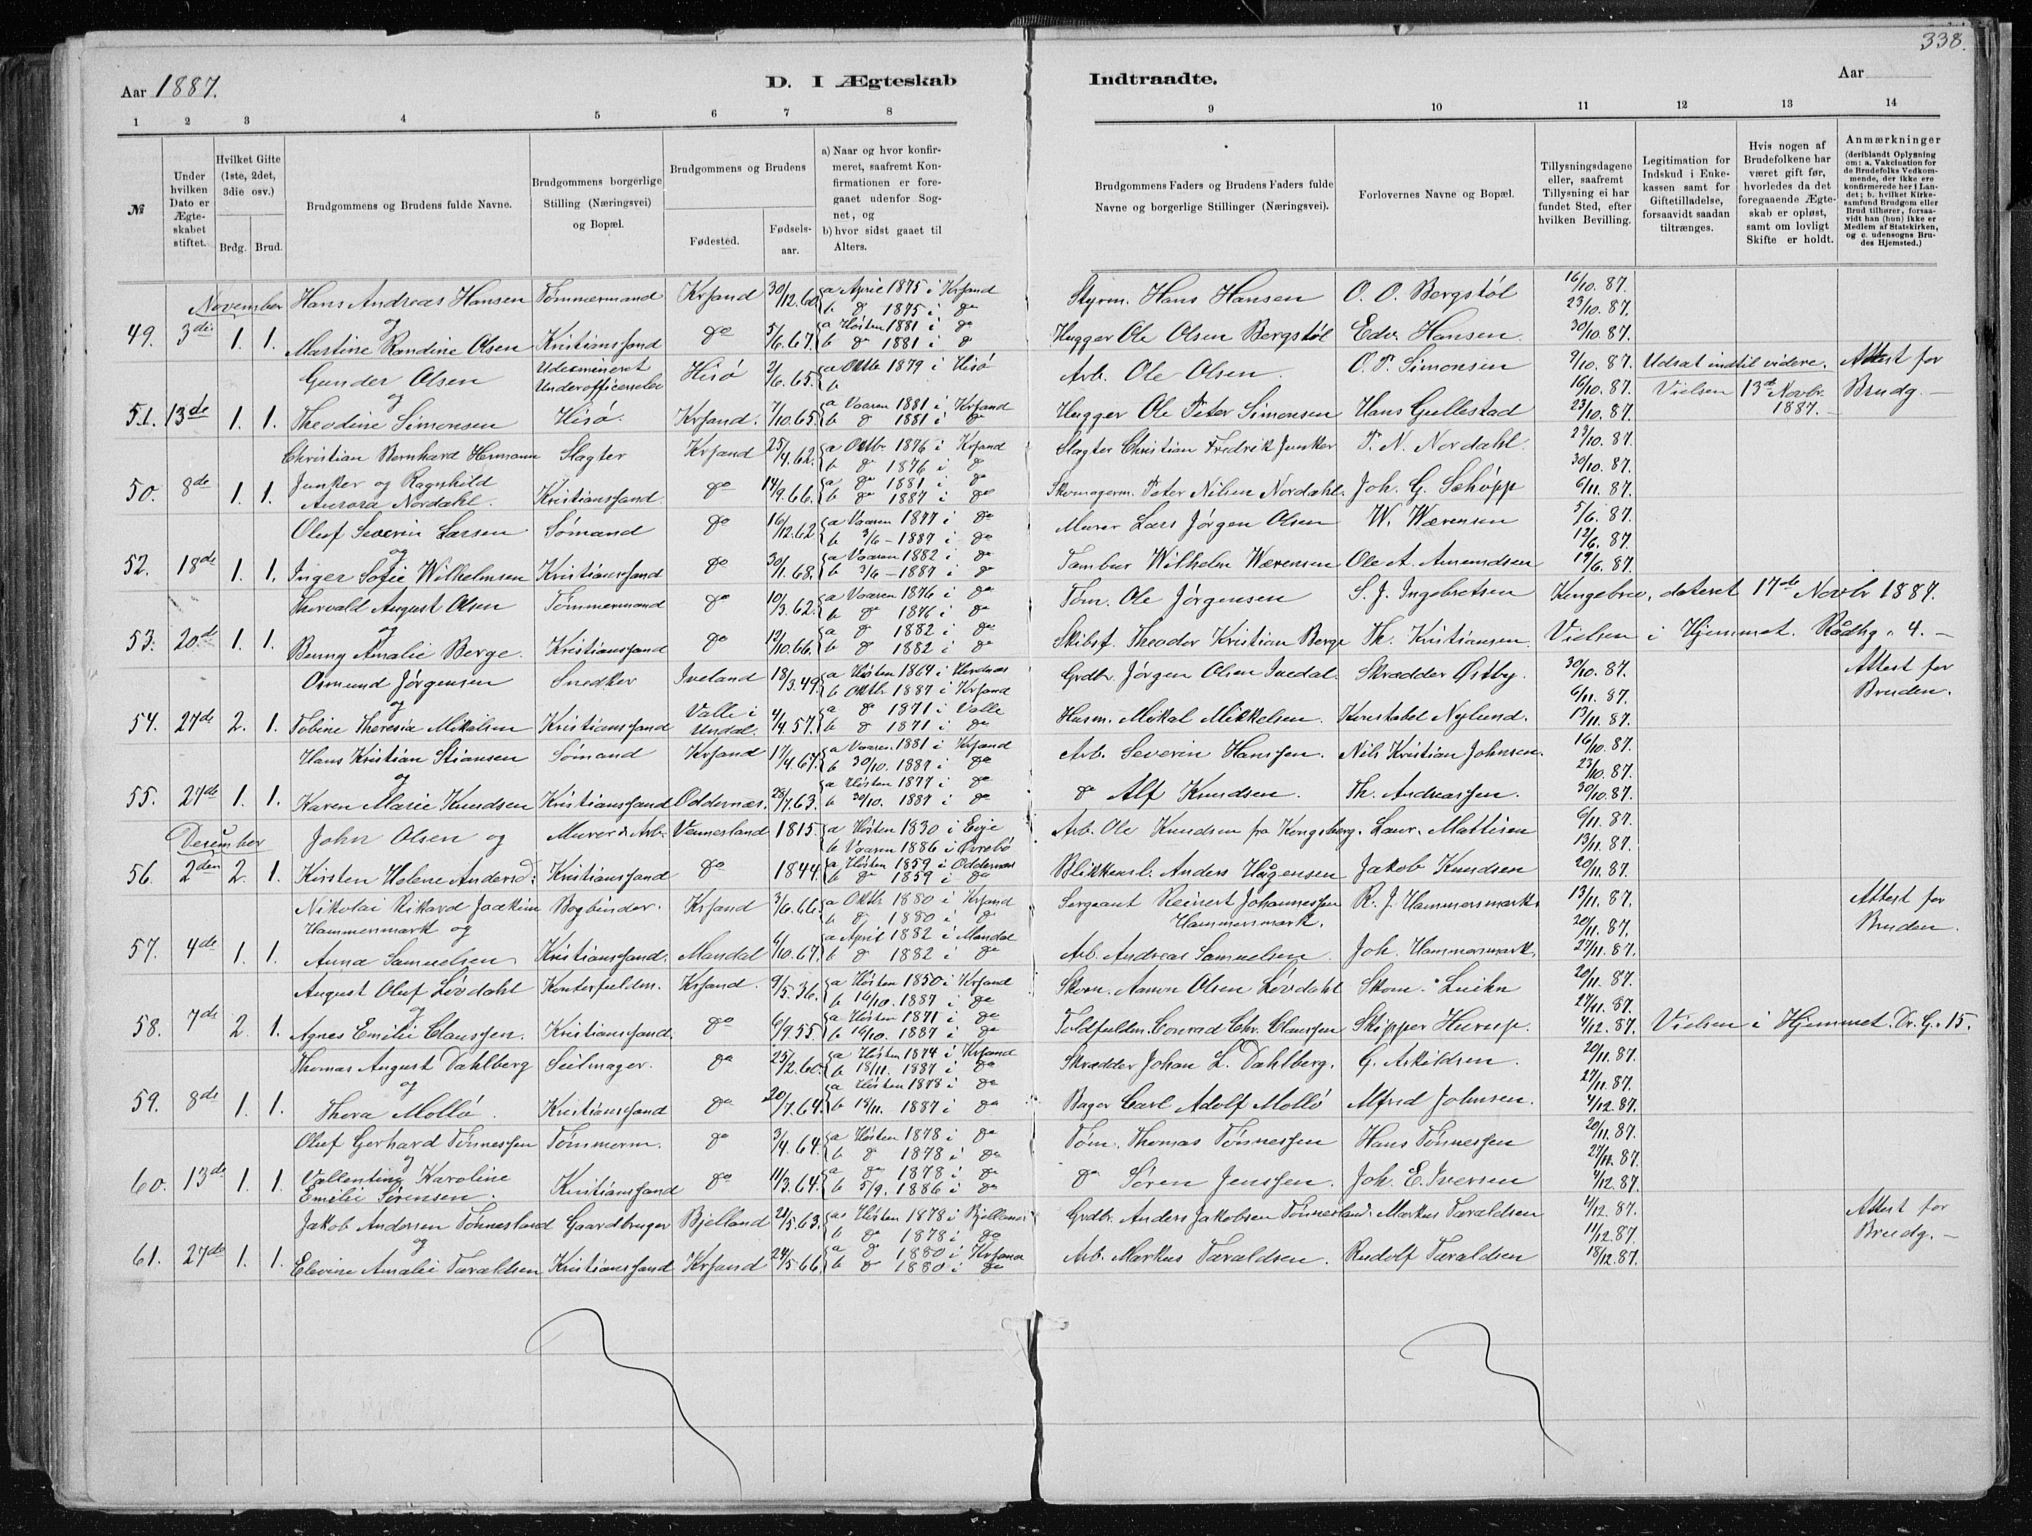 338.
Aar 1887.
D. I Ægteskab
Indtraadte.
Aar
1 2 3 4 5 6 7 8
9 10 11 12 13 14
№
Under hvilken Dato er Ægteskabet stiftet.
Hvilket Gifte (1ste, 2det, 3die osv.)
Brdg. Brud.
Brudgommens og Brudens fulde Navne.
Brudgommens borgerlige Stilling (Næringsvei) og Bopæl.
Brudgommens og Brudens
Fødested.
Fødselsaar.
a) Naar og hvor konfirmeret, saafremt Konfirmationen er foregaaet udenfor Sognet, og
b) hvor sidst gaaet til Alters.
Brudgommens Faders og Brudens Faders fulde Navne og borgerlige Stillinger (Næringsvei).
Forlovernes Navne og Bopæl.
Tillysningsdagene eller, saafremt Tillysning ei har fundet Sted, efter hvilken Bevilling.
Legitimation for Indskud i Enkekassen samt for Giftetilladelse, forsaavidt saadan tiltrænges.
Hvis nogen af Brudefolkene har været gift før, hvorledes da det foregaaende Ægteskab er opløst, samt om lovligt Skifte er holdt.
Anmærkninger (deriblandt Oplysning om: a. Vakcination for de Brudefolks Vedkommende, der ikke ere konfirmerede her i Landet; b. hvilket Kirkesamfund Brudgom eller Brud tilhører, forsaavidt han (hun) ikke er Medlem af Statskirken, og c. udensogns Brudes Hjemsted.)
November Hans Andreas Hansen Tømmermand Krsand 30/12.60. a April 1875 i Krsand b do 1875 i do Styrm. Hans Hansen O. O. Bergstøl 16/10.87. 23/10.87.
og
49. 3die 1. 1. Martine Randine Olsen Kristianssand do 5/6.67. a Høsten 1881 i do b do 1881 i do Hugger Ole Olsen Bergstøl Edv. Hansen 30/10.87.
Gunder Olsen Udexmineret Underofficerselev Hisø 2/6.65. a Oktb. 1879 i Hisø b Arb. Ole Olsen. O. P. Simonsen 9/10.87. 16/10.87. Udsat indtil videre. Vielsen 13de Novbr. 1887. Attest for Brudg.
og
51. 13de 1. 1. Theodine Simonsen Hisø. Krsand. 7/10.65. a Vaaren 1881 i Krsand b do 1881 i do Hugger Ole Peter Simonsen Hans Gullestad 23/10.87.
Christian Bernhard Hermann Slagter Krsand 25/4.62. a Oktbr. 1876 i Krsand b do 1876 i do Slagter Christian Fredrik Junker P. N. Nordahl 23/10.87. 30/10.87.
50. 8de 1. 1. Junker og Ragnhild Aurora Nordahl. Kristianssand. do 14/9.66. a do 1881 i do b do 1887 i do Skomagerm. Peter Nilsen Nordahl. Joh. G. Schøpp 6/11.87.
Oluf Severin Larsen Sømand do 16/12.62. a Vaaren 1877 i do b 3/6 - 1887 i do Murer Lars Jørgen Olsen W. Wærensen 5/6.87. 12/6.87.
og
52. 18de 1. 1. Inger Sofie Wilhelmsen Kristianssand do 30/11.68. a Vaaren 1882 i do b 3/6 - 1887 i do Tambur Wilhelm Wærensen Ole A. Amundsen 19/6.87.
Thorvald August Olsen Tømmermand do 10/3.62. a Vaaren 1876 i do b do 1876 i do Tøm. Ole Jørgensen S. J. Ingebretsen Kongebrev, dateret 17de Novbr 1887.
og
53. 20de 1. 1. Benny Amalie Berge. Kristianssand do 12/10.66. a do 1882 i do b do 1882 i do Skibst. Theodor Kristian Berge Th. Kristiansen. Vielsen i Hjemmet. Rådhg. 4.
Osmund Jørgensen Snedker Iveland 18/3.49. a Høsten 1864 i Herdnæs b Oktb. 1887 i Krsand Grdbr. Jørgen Olsen Ivedal. Skrædder Østby. 30/10.87. 6/11.87. Attest for Bruden.
og
54. 27de 2. 1. Tobine Theresia Mikalsen Kristianssand Valle i Undal. 4/4.57. a do 1871 i Valle b do 1871 i do Husm. Mikal Mikkelsen. Konstabel Nylund. 13/11.87.
Hans Kristian Stiansen Sømand Krsand 17/4.67. a Vaaren 1881 i Krsand b 30/10. 1887 i do Arb. Severin Hanssen. Nils Kristian Johnsen. 16/10.87. 23/10.87.
og
55. 27de 1. 1. Karen Marie Knudsen Kristianssand Oddernæs. 28/7.63. a Høsten 1877 i do b 30/10. 1887 i do do Alf Knudsen. Th. Andreassen. 30/10.87.
December John Olsen og Murer & Arb. Vennesland 1815. a Høsten 1830 i Evje b Vaaren 1886 i Øvrebø Arb. Ole Knudsen fra Kongsberg. Laur. Mattisen 6/11.87. 13/11.87.
56. 2den 2. 1. Kirsten Helene Andersd: Kristianssand do 1844. a Høsten 1859 i Oddernæs b do 1859 i do Blikkensl. Anders Haagensen Jakob Knudsen 20/11.87.
Nikolai Rikard Joakim Bogbinder. Krsand 3/6.66. a Oktb. 1880 i Krsand b do 1880 i do Sergeant Reinert Johannessen Hammersmark. R. J. Hammersmark. 13/11.87. 20/11.87. Attest for Bruden.
Hammersmark og
57. 4de 1. 1. Anna Samuelsen Kristianssand. Mandal 6/10.67. a April 1882 i Mandal b do 1882 i do Arb. Andreas Samuelsen. Joh. Hammersmark. 27/11.87.
August Oluf Løvdahl Konterfuldm. Krsand. 9/5.36. a Høsten 1850 i Krsand b 16/10. 1887 i do Skom. Aanon Olsen Løvdahl Skom. 20/11.87. 27/11.87.
og
58. 7de 2. 1. Agnes Emilie Claussen. Kristianssand. do 6/9.55. a Høsten 1871 i do b 16/10. 1887 i do Toldfuldm. Conrad Chr. Claussen Skipper Hurup. 4/12.87. Vielsen i Hjemmet. Dr. G. 15.
Thomas August Dahlberg Seilmager. do 25/2.60. a Høsten 1874 i Krsand b 18/11. 1887 i do Skrædder Johan L. Dahlberg. G. Askildsen. 20/11.87. 27/11.87.
og
59. 8de 1. 1. Thora Mollø. Kristianssand do 20/7.64. a Høsten 1878 i do b 18/11. 1887 i do Bager Carl Adolf Mollø Alfred Johnsen. 4/12.87.
Oluf Gerhard Tønnessen Tømmerm. do 3/4.64. a Høsten 1878 i do b do 1878 i do Tøm. Thomas Tønnessen Hans Tønnessen 20/11.87. 27/11.87.
og
60. 13de 1. 1. Vallentine Karoline Emilie Sørensen. Kristianssand do 11/3.64. a do 1878 i do b 5/9. 1886 i do do Søren Jenssen. Joh. E. Iversen 4/12.87.
Jakob Andersen Tønnesland Gaardbruger Bjelland 21/5.63. a Høsten 1878 i Bjelland b do 1878 i do Grdbr. Anders Jakobsen Tønnesland. Markus Taraldsen 4/12.87. 11/12.87. Attest for Brudg.
og
61. 27de 1. 1. Elevine Amalie Taraldsen Kristianssand Krsand 24/5.66. a do 1880 i Krsand b do 1880 i do Arb. Markus Taraldsen. Rudolf Taraldsen 18/12.87.